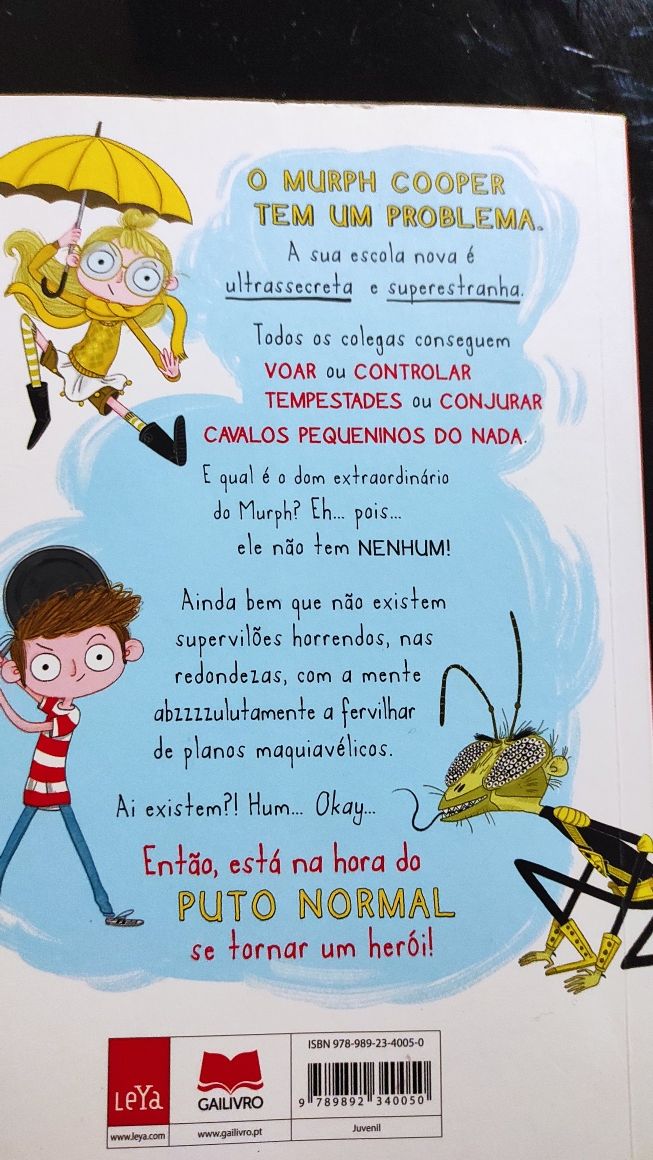 O MURPH COOPER
TEM UM PROBLEMA.
A sua escola nova é
ultrassecreta e superestranha.
Todos os colegas conseguem
VOAR ou CONTROLAR
TEMPESTADES ou CONJURAR
CAVALOS PEQUENINOS DO NADA.
E qual é o dom extraordinário
do Murph? Eh... pois...
ele não tem NENHUM!
Ainda bem que não existem
supervilões horrendos, nas
redondezas, com a mente
abzzzzulutamente a fervilhar
de planos maquiavélicos.
Ai existem?! Hum... Okay...
Então, está na hora do
PUTO NORMAL
se tornar um herói!
LEYA
www.leya.com
GAILIVRO
www.gailivro.pt
ISBN 978-989-23-4005-0
9 789892 340050
Juvenil